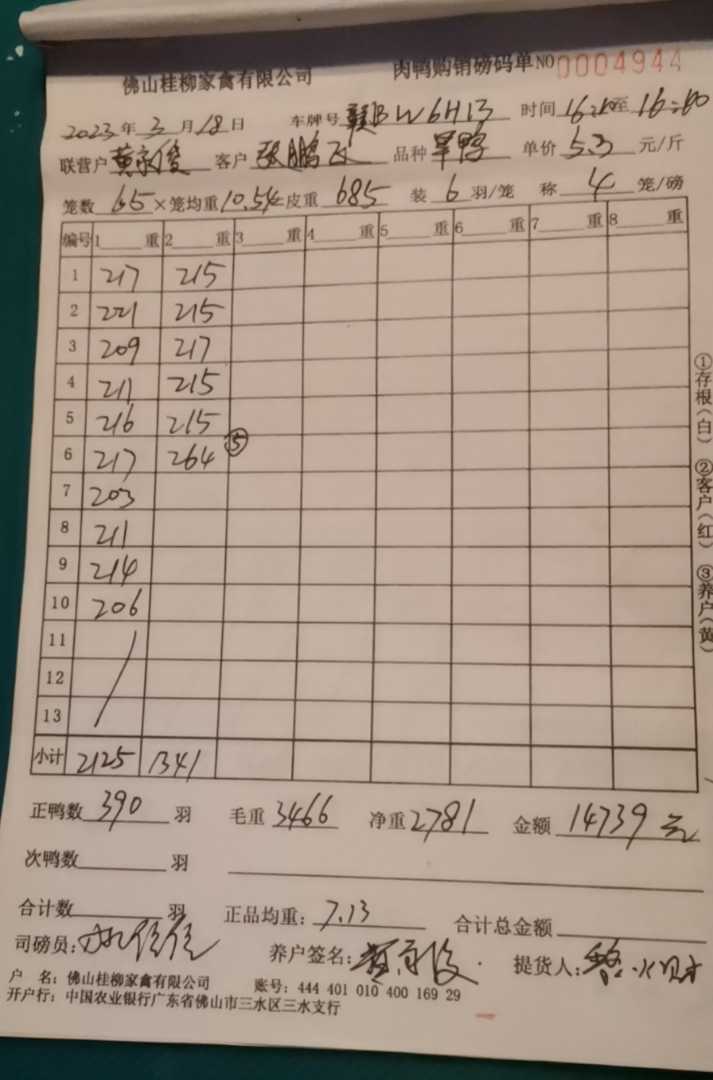 佛山桂柳家禽有限公司 肉鸭购销磅码单 NO 0004944
2023年3月18日 车牌号 赣BW6H13 时间 16: 至 16:
联营户 黄 俊 客户 张鹏飞 品种 旱鸭 单价 5.3 元/斤
笼数 65 ×笼均重 10.54 皮重 685 装 6 羽/笼 称 4 笼/磅
编号 1 重 2 重 3 重 4 重 5 重 6 重 7 重 8 重
1 217 215
2 221 215
3 209 217
4 211 215
5 216 215
6 217 264 ⑤
7 203
8 211
9 214
10 206
11
12
13
小计 2125 1341
正鸭数 390 羽 毛重 3466 净重 2781 金额 14739元
次鸭数 羽
合计数 羽 正品均重: 7.13 合计总金额
司磅员: 养户签名: 提货人:
户 名: 佛山桂柳家禽有限公司 账号: 444 401 010 400 169 29
开户行: 中国农业银行广东省佛山市三水区三水支行
①存根(白) ②客户(红) ③养户(黄)